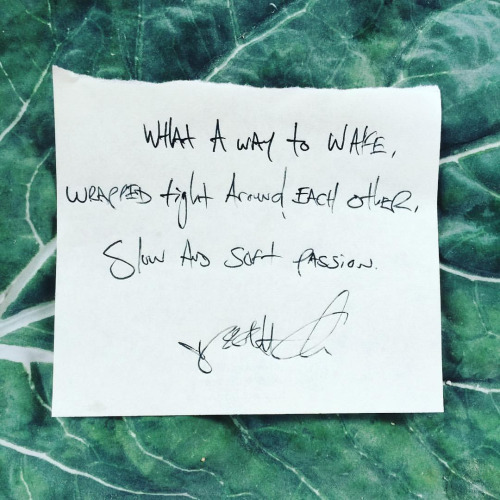 WHAT A WAY to WAKE,
WRAPPED tight Around EACH other,
Slow AND soft PASSION.